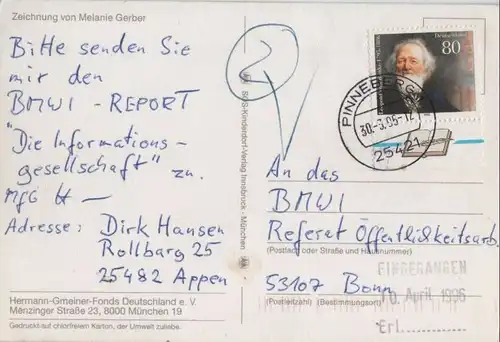 Zeichnung von Melanie Gerber
Bitte senden Sie
mir den
BMWI - REPORT
"Die Informations-
gesellschaft" zu.
MfG
Adresse: Dirk Hansen
Rollbarg 25
25482 Appen
Hermann-Gmeiner-Fonds Deutschland e. V.
Menzinger Straße 23, 8000 München 19
Gedruckt auf chlorfreiem Karton, der Umwelt zuliebe.
BSV-Kinderdorf-Verlag Innsbruck - München
2
80
PINNEBERG
25421
An das
BMWI
Referat Öffentlichkeitsarb.
(Postfach oder Straße und Hausnummer)
53107 Bonn
(Postleitzahl) (Bestimmungsort)
EINGEGANGEN
April 1996
Erl.